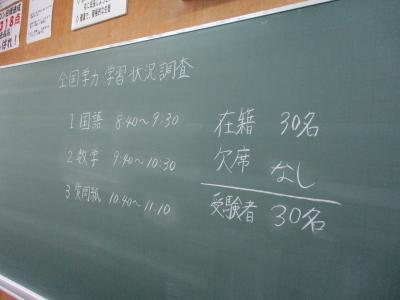 全国学力・学習状況調査
1 国語 8:40～9:30
2 数学 9:40～10:30
3 質問紙 10:40～11:10
在籍 30名
欠席 なし
受験者 30名